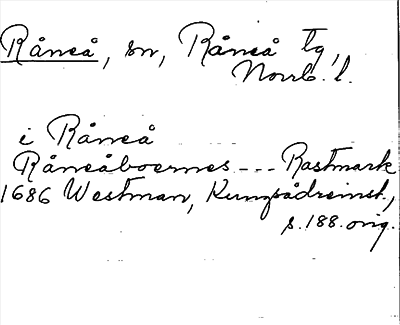 Råneå, sn, Råneå tg,
Norrb. l.
i Råneå
Råneåboernes --- Rastmark
1686 Westman, Kungsådreinst.,
s. 188. orig.